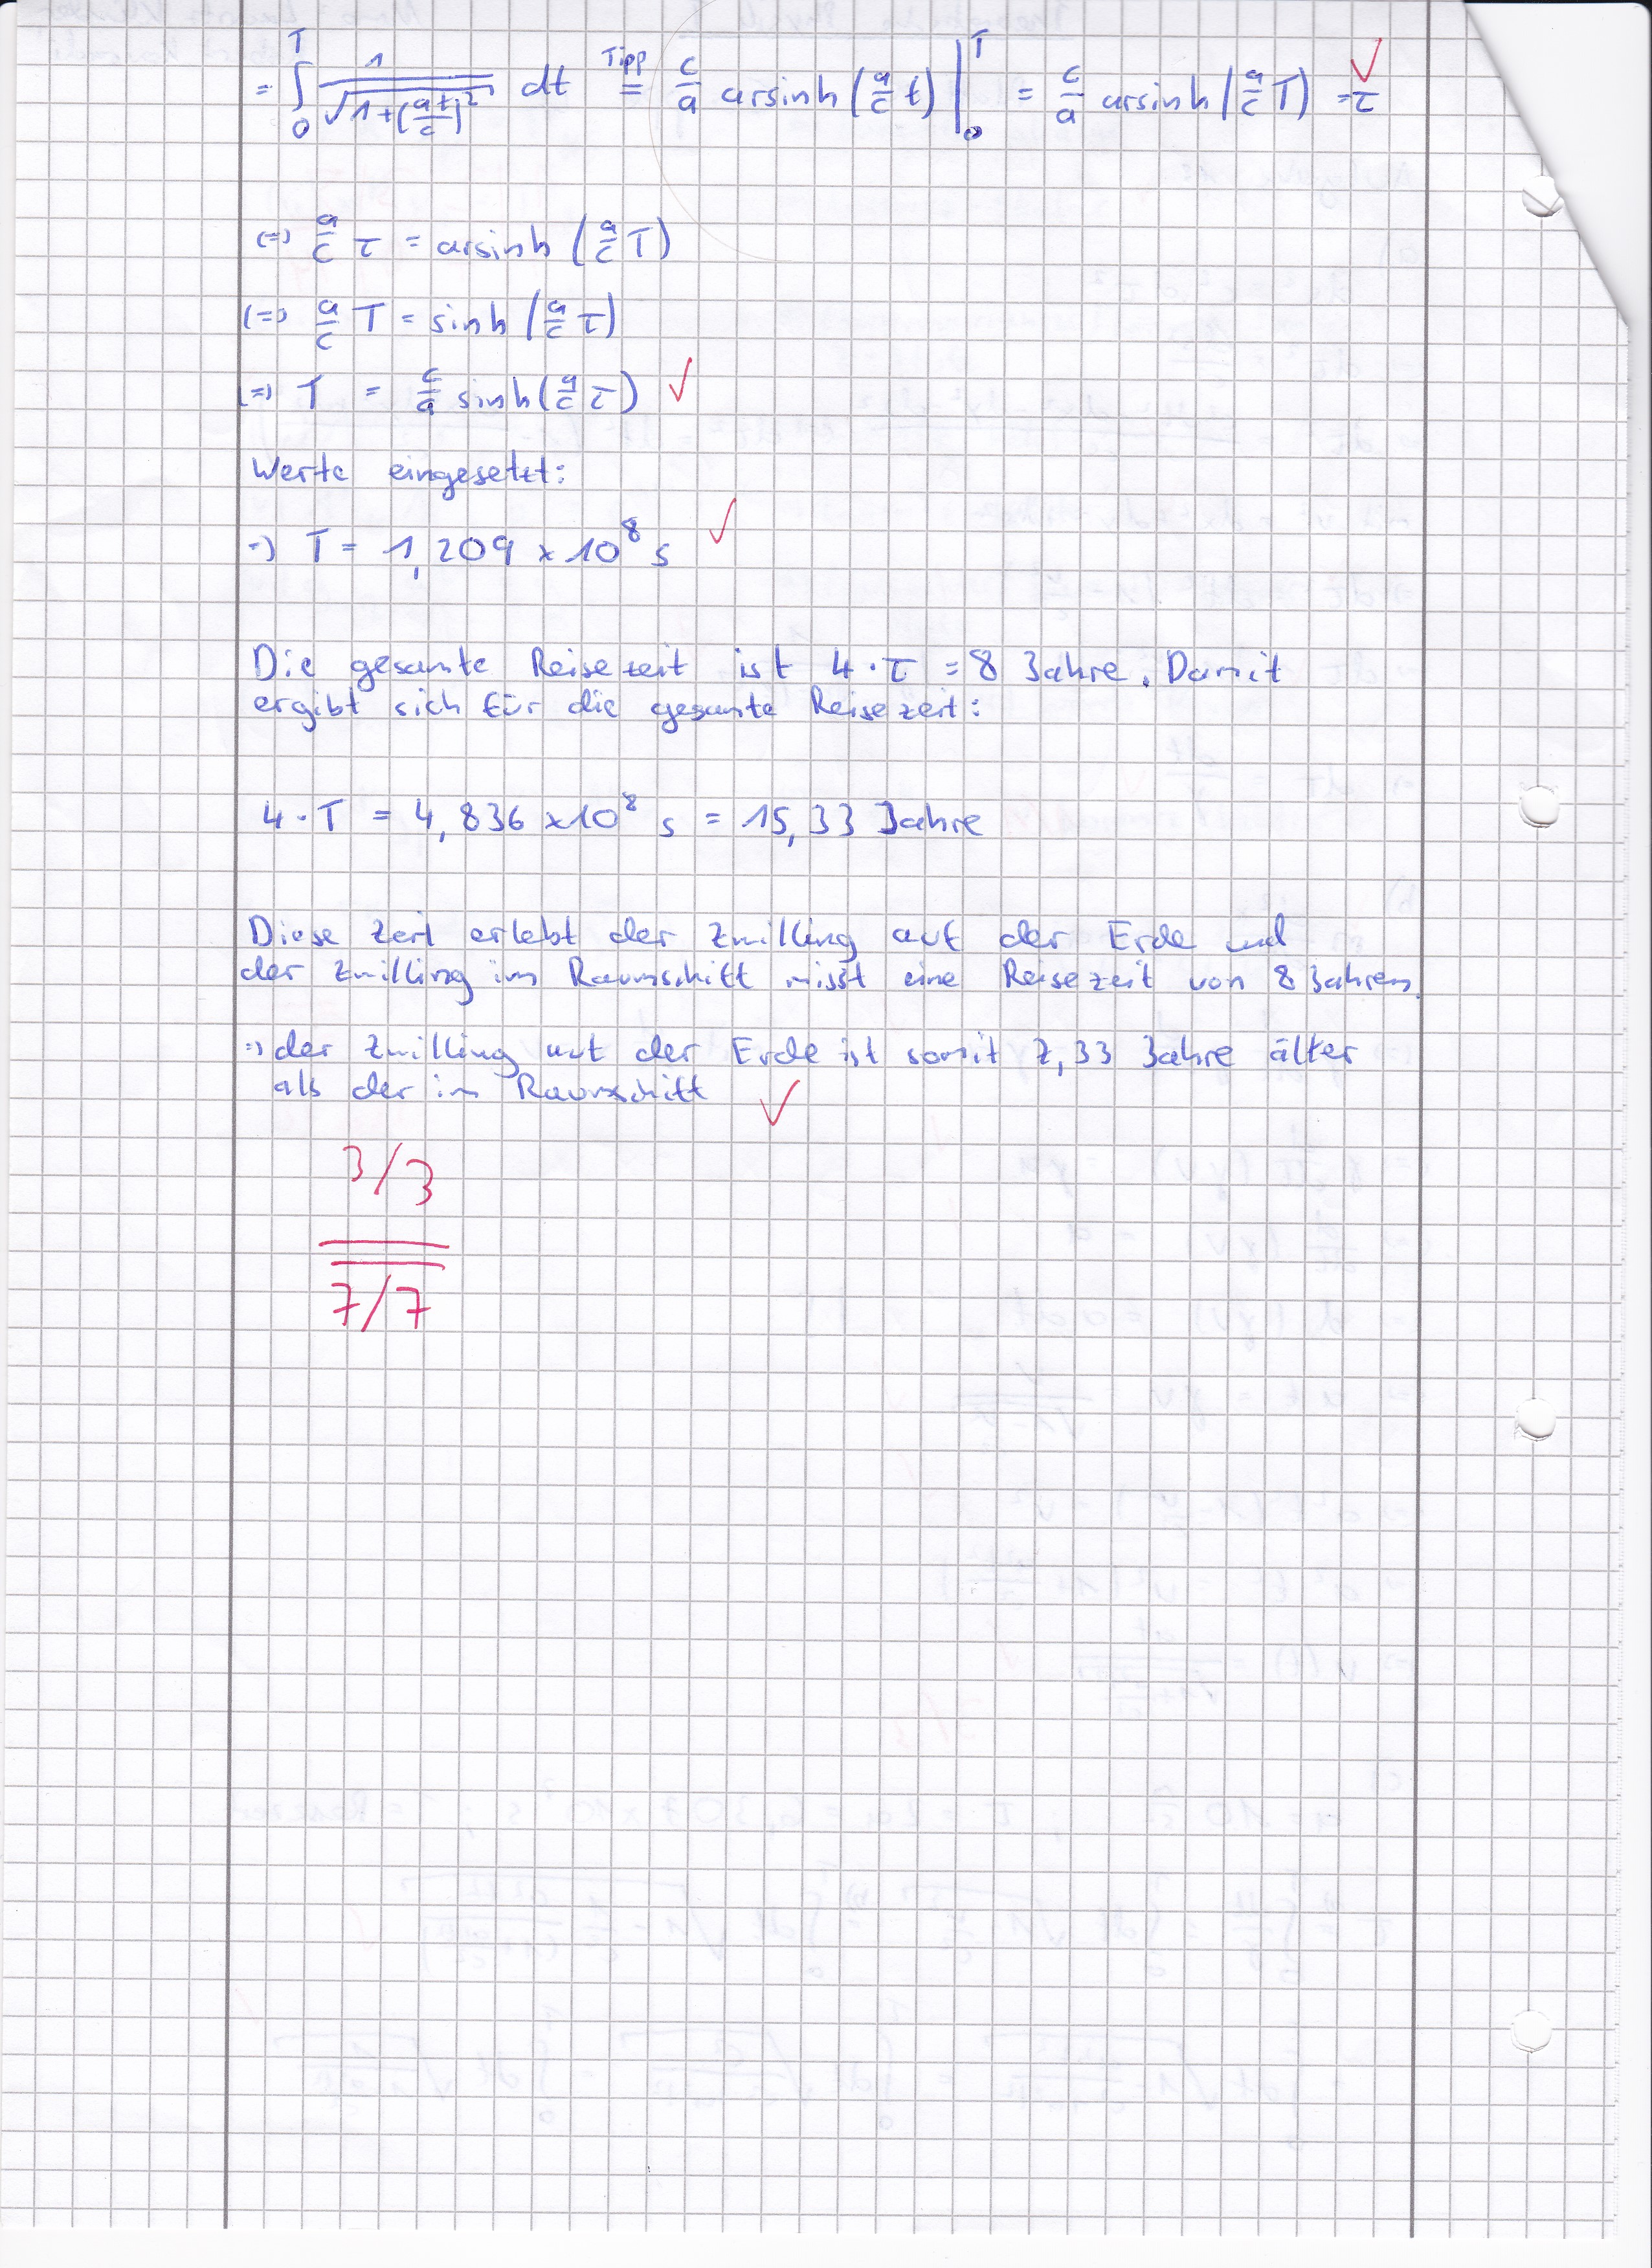 = ∫₀ᵀ 1/√(1+(at/c)²) dt =(Tipp) c/a arsinh(a/c t) |₀ᵀ = c/a arsinh(a/c T) = τ ✓
(=) a/c τ = arsinh (a/c T)
(=) a/c T = sinh (a/c τ)
(=) T = c/a sinh(a/c τ) ✓
Werte eingesetzt:
=) T = 1,209 × 10⁸ s ✓
Die gesamte Reisezeit ist 4 · τ = 8 Jahre. Damit
ergibt sich für die gesamte Reisezeit:
4 · T = 4,836 × 10⁸ s = 15,33 Jahre
Diese Zeit erlebt der Zwilling auf der Erde und
der Zwilling im Raumschiff misst eine Reisezeit von 8 Jahren.
=) der Zwilling auf der Erde ist somit 7,33 Jahre älter
als der im Raumschiff ✓
3/3
7/7